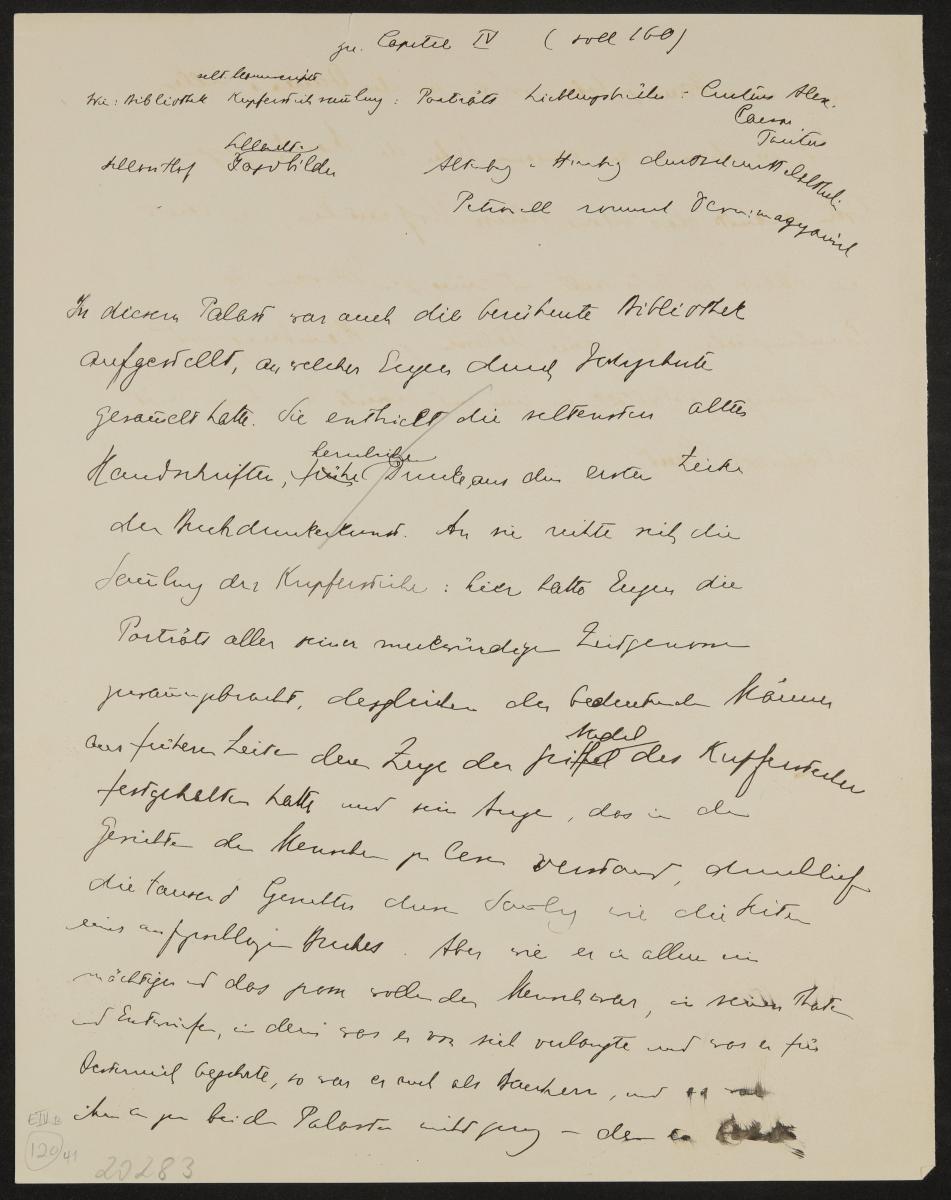 zu. Capitel IV (soll 160)
selt. Manuscripte
Wie: Bibliothek Kupferstichsamlung: Porträts Lieblingsbücher: Curtius Alex.
Caesar
Tacitus
Schlosshof Jagdbilder
Petronell
In diesem Palast war auch die berühmte Bibliothek
aufgestellt, an welcher Eugen durch Jahrzehnte
gesamelt hatte. Sie enthielt die seltensten alten
Handschriften, frühe herrliche Drucke, aus den ersten Zeiten
der Buchdruckerkunst. An sie reihte sich die
Samlung der Kupferstiche: hier hatte Eugen die
Porträts aller seiner merkwürdigen Zeitgenossen
zusamengebracht, desgleichen der bedeutenden Männer
aus frühern Zeiten deren Züge der Griffel Nadel des Kupferstechers
festgehalten hatte und sein Auge, das in den
Gesichtern der Menschen zu lesen verstand, durchlief
die tausend Gesichter dieser Samlung wie die Seiten
eines aufgeschlagenen Buches. Aber wie er in allem ein
mächtiger und das grosse wollender Mensch war, in seinen Thaten
und Entwürfen, in dem was er von sich verlangte und was er für
Oesterreich begehrte, so war er auch als Bauherr, und
ihm an zwei beiden Palästen nicht genug – der
E IV B
120 41
20283